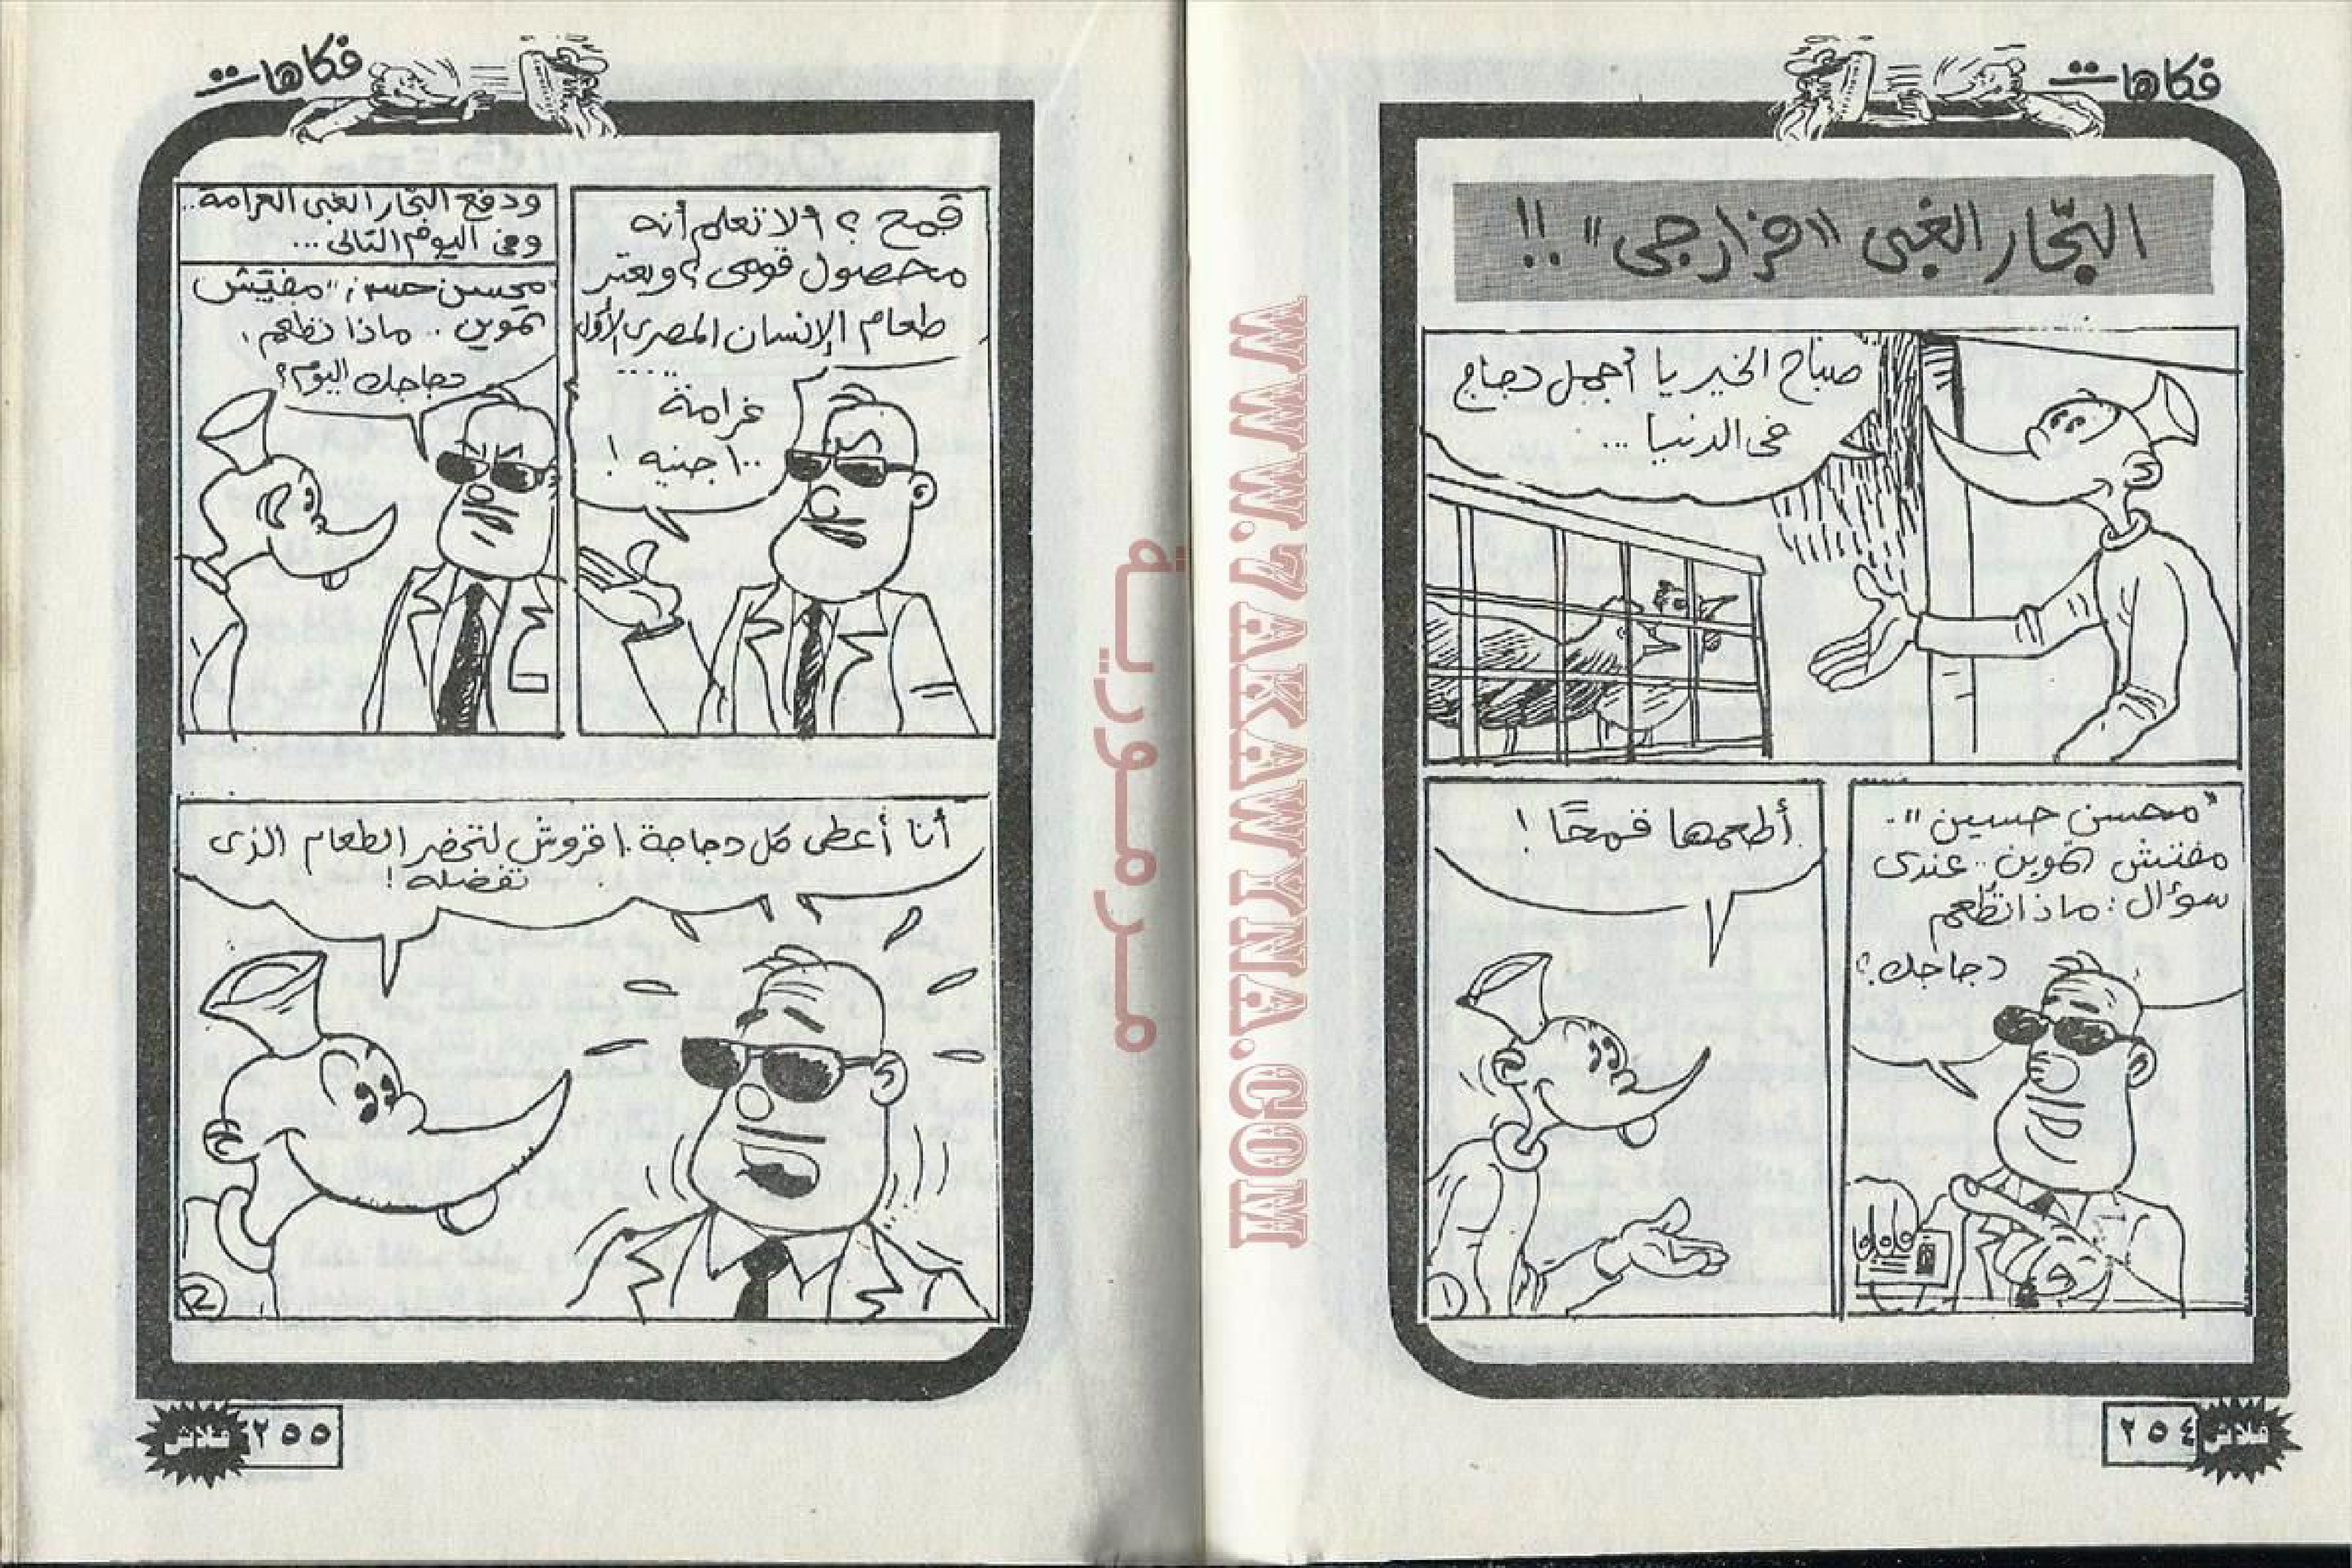 فكاهات
النجّار الغبى "فرارجى" !!
صباح الخير يا أجمل دجاج
فى الدنيا ...
"محسن حسين" ..
مفتش تموين .. عندى
سؤال : ماذا تُطعم
دجاجك ؟
أطعمها قمحًا !
٢٥٤
فلاش
فكاهات
قمح ؟ ألا تعلم أنه
محصول قومى ؟ ويعتبر
طعام الإنسان المصرى الأول
.....
غرامة
١٠٠ جنيه !
ودفع النجار الغبى الغرامة ..
وفى اليوم التالى ...
"محسن حسين" مفتش
تموين .. ماذا تطعم
دجاجك اليوم ؟
أنا أعطى كل دجاجة ١٠ قروش لتحضر الطعام الذى
تفضله !
٢٥٥
فلاش
مرمورية
WWW.7AKAWYNA.COM